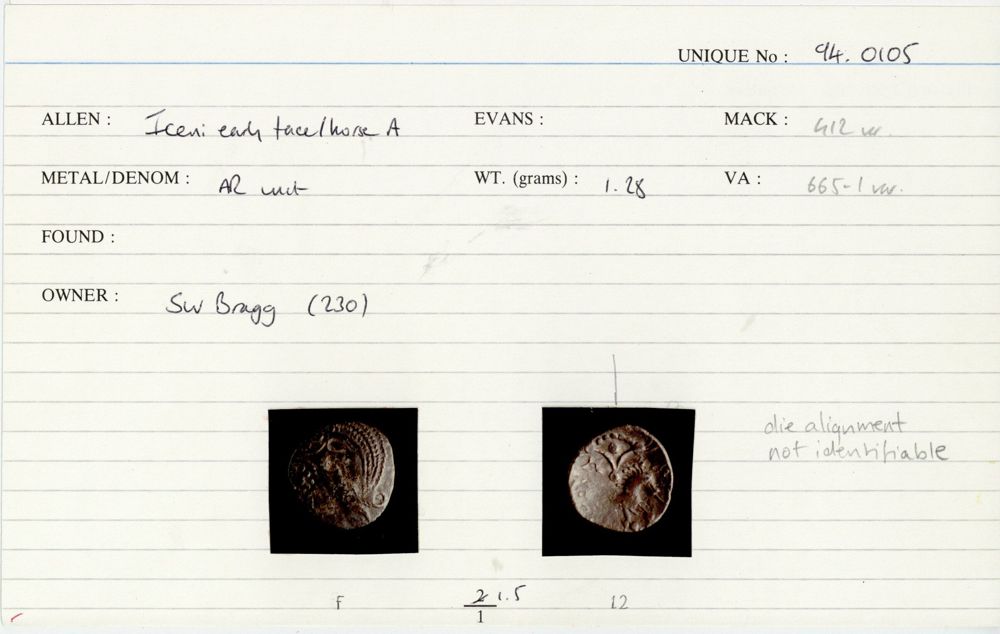 UNIQUE No : 94.0105
ALLEN : Iceni early face/horse A EVANS : MACK : 412 var.
METAL/DENOM : AR unit WT. (grams) : 1.28 VA : 665-1 var.
FOUND :
OWNER : SW Bragg (230)
die alignment
not identifiable
f 2 1.5 12
1